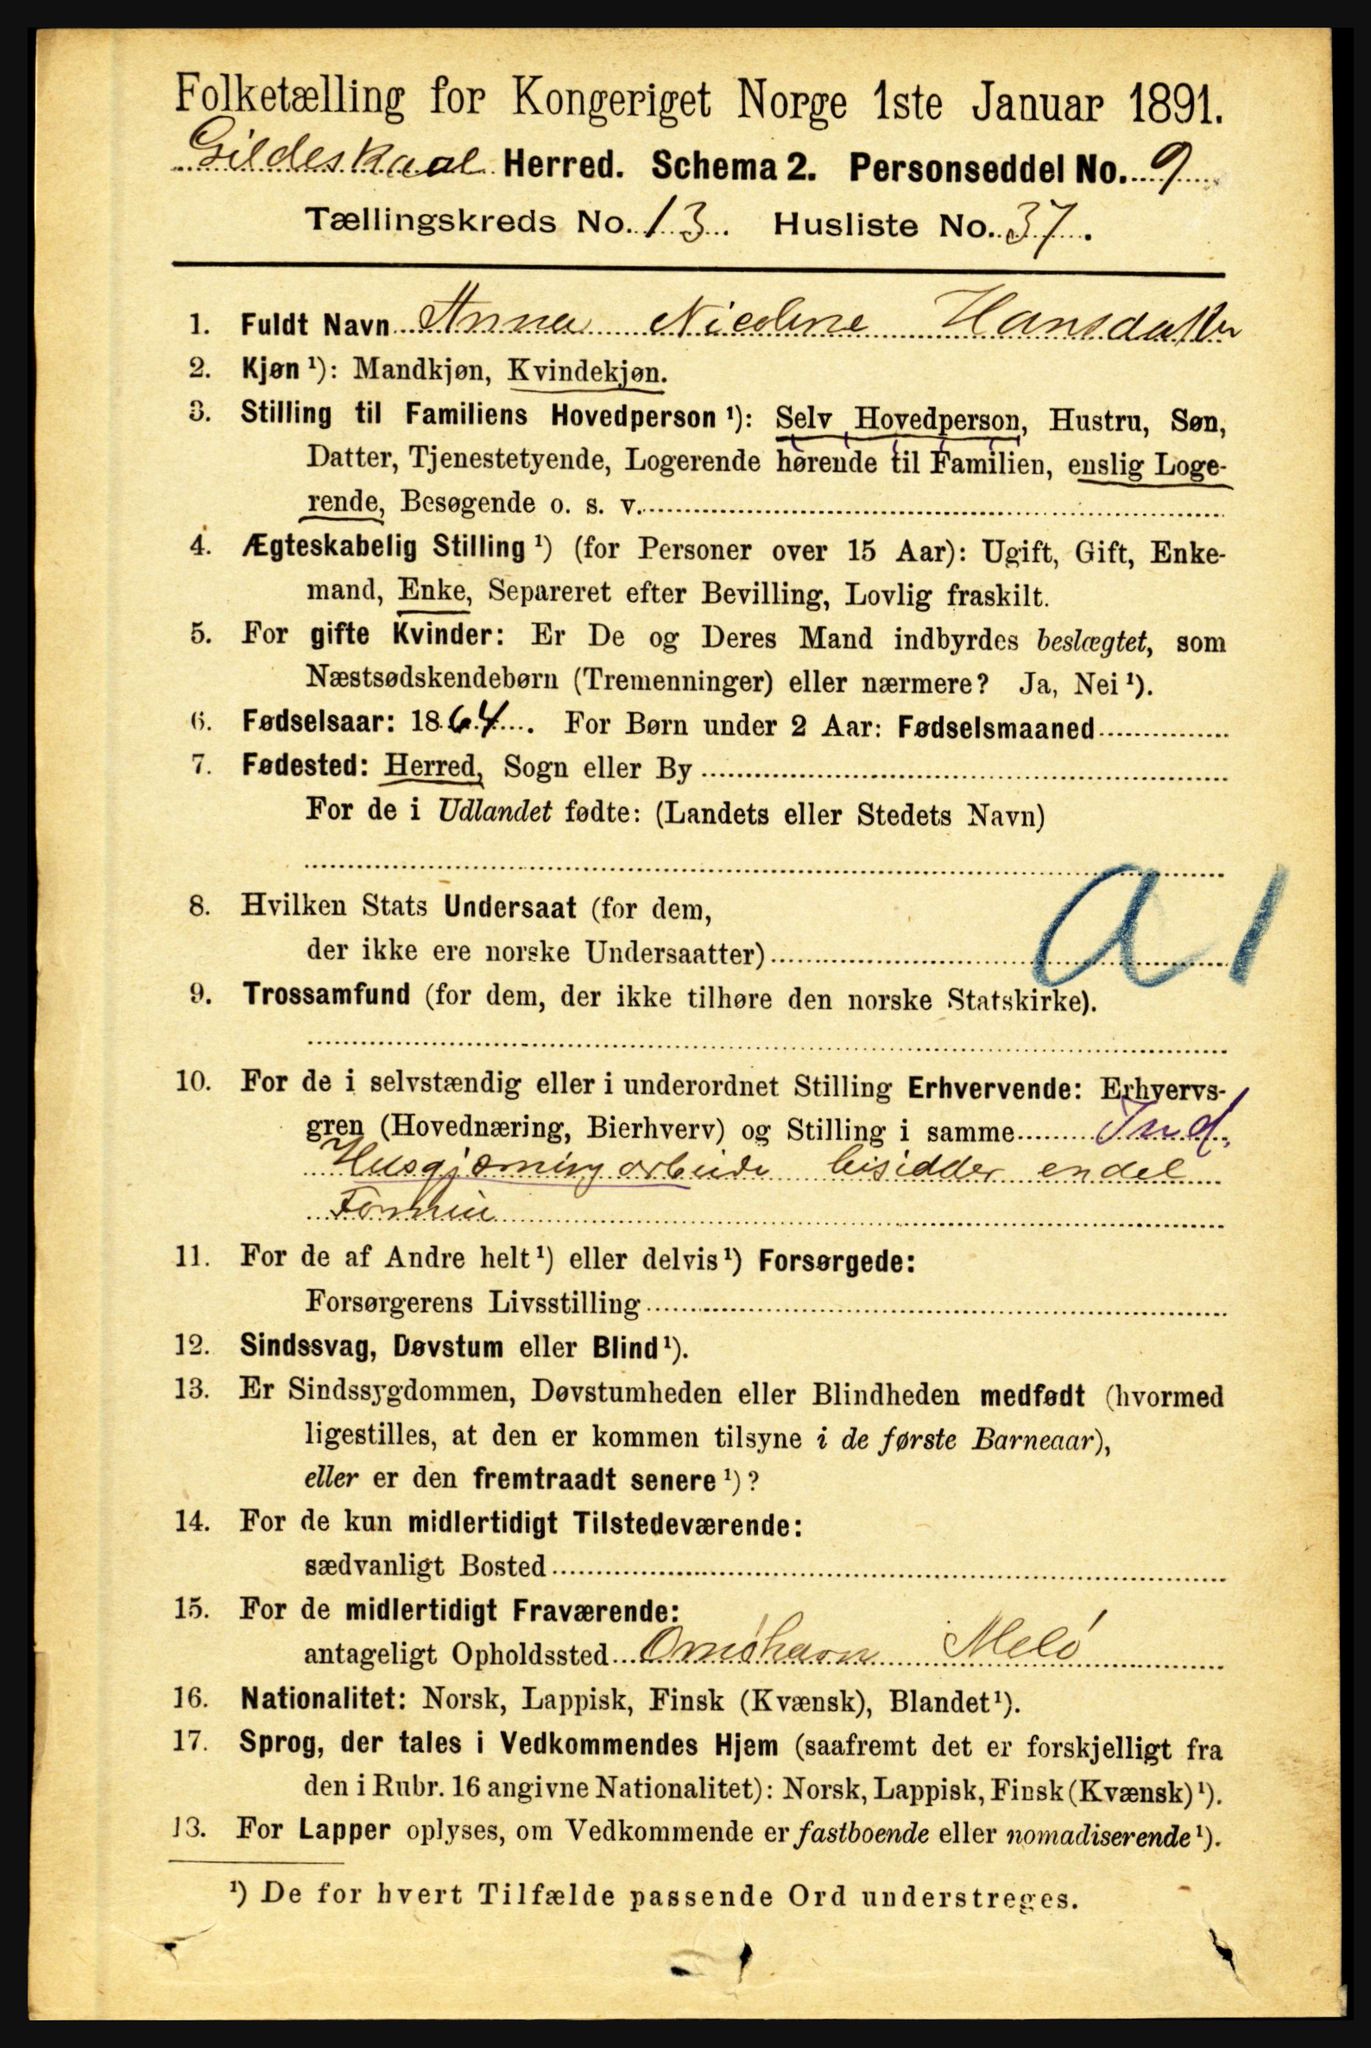 Folketælling for Kongeriget Norge 1ste Januar 1891.
Gildeskaal Herred. Schema 2. Personseddel No. 9
Tællingskreds No. 13. Husliste No. 37.
1. Fuldt Navn Anna Nicoline Hansdatter
2. Kjøn ¹): Mandkjøn, Kvindekjøn.
3. Stilling til Familiens Hovedperson ¹): Selv Hovedperson, Hustru, Søn,
Datter, Tjenestetyende, Logerende hørende til Familien, enslig Loge-
rende, Besøgende o. s. v.
4. Ægteskabelig Stilling ¹) (for Personer over 15 Aar): Ugift, Gift, Enke-
mand, Enke, Separeret efter Bevilling, Lovlig fraskilt.
5. For gifte Kvinder: Er De og Deres Mand indbyrdes beslægtet, som
Næstsødskendebørn (Tremenninger) eller nærmere? Ja, Nei ¹).
6. Fødselsaar: 1864. For Børn under 2 Aar: Fødselsmaaned
7. Fødested: Herred, Sogn eller By
For de i Udlandet fødte: (Landets eller Stedets Navn)
A 1
8. Hvilken Stats Undersaat (for dem,
der ikke ere norske Undersaatter)
9. Trossamfund (for dem, der ikke tilhøre den norske Statskirke).
10. For de i selvstændig eller i underordnet Stilling Erhvervende: Erhvervs-
gren (Hovednæring, Bierhverv) og Stilling i samme Ind.
Husgjærning arbeide besidder endel
11. For de af Andre helt ¹) eller delvis ¹) Forsørgede:
Forsørgerens Livsstilling
12. Sindssvag, Døvstum eller Blind ¹).
13. Er Sindssygdommen, Døvstumheden eller Blindheden medfødt (hvormed
ligestilles, at den er kommen tilsyne i de første Barneaar),
eller er den fremtraadt senere ¹)?
14. For de kun midlertidigt Tilstedeværende:
sædvanligt Bosted
15. For de midlertidigt Fraværende:
antageligt Opholdssted Ørnøhavn Melø
16. Nationalitet: Norsk, Lappisk, Finsk (Kvænsk), Blandet ¹).
17. Sprog, der tales i Vedkommendes Hjem (saafremt det er forskjelligt fra
den i Rubr. 16 angivne Nationalitet): Norsk, Lappisk, Finsk (Kvænsk) ¹).
13. For Lapper oplyses, om Vedkommende er fastboende eller nomadiserende ¹).
¹) De for hvert Tilfælde passende Ord understreges.